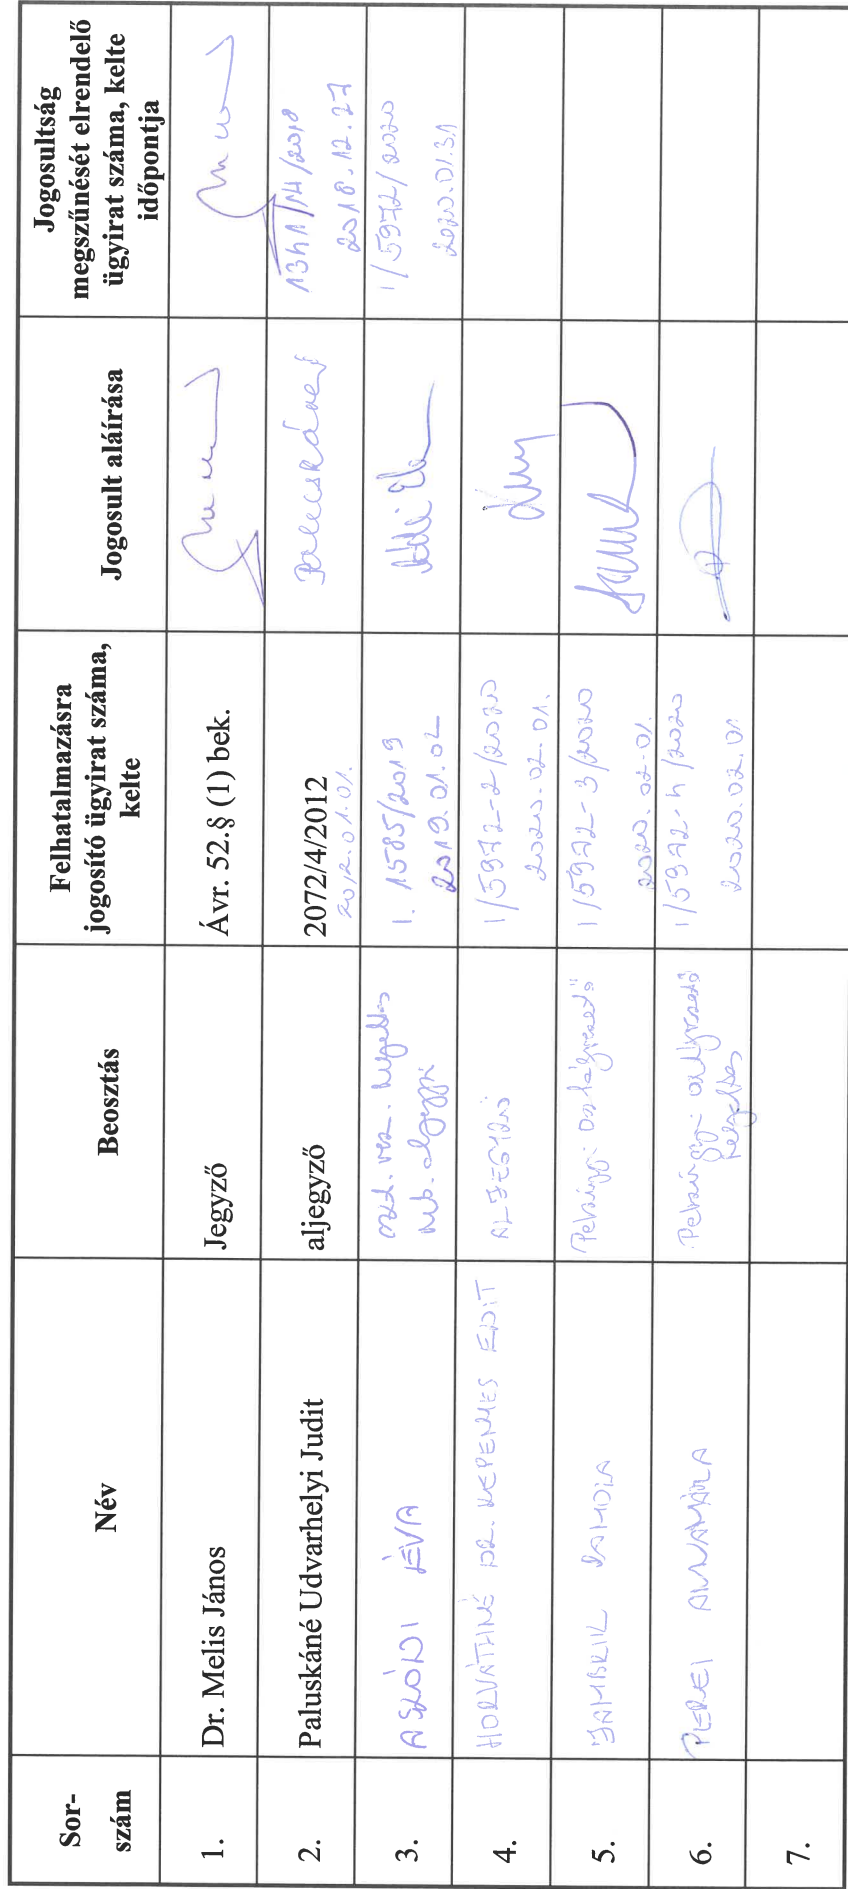 Sor-
szám
Név
Beosztás
Felhatalmazásra
jogosító ügyirat száma,
kelte
Jogosult aláírása
Jogosultság
megszűnését elrendelő
ügyirat száma, kelte
időpontja
1.
Dr. Melis János
Jegyző
Ávr. 52.§ (1) bek.
2.
Paluskáné Udvarhelyi Judit
aljegyző
2072/4/2012
2012.01.01.
1341/14/2018
2018.12.27
3.
ASZÓDI ÉVA
mb. aljegyző
1. 1585/2019
2019.01.02
1/5972/2020
2020.01.31
4.
HORVÁTHNÉ DR. KEPENYES EDIT
ALJEGYZŐ
1/5972-2/2020
2020.02.01.
5.
JAMBRIK
Pénzügyi osztályvezető
1/5972-3/2020
2020.02.01.
6.
PEREI ANNAMÁRIA
Pénzügyi osztályvezető
helyettes
1/5972-4/2020
2020.02.01
7.